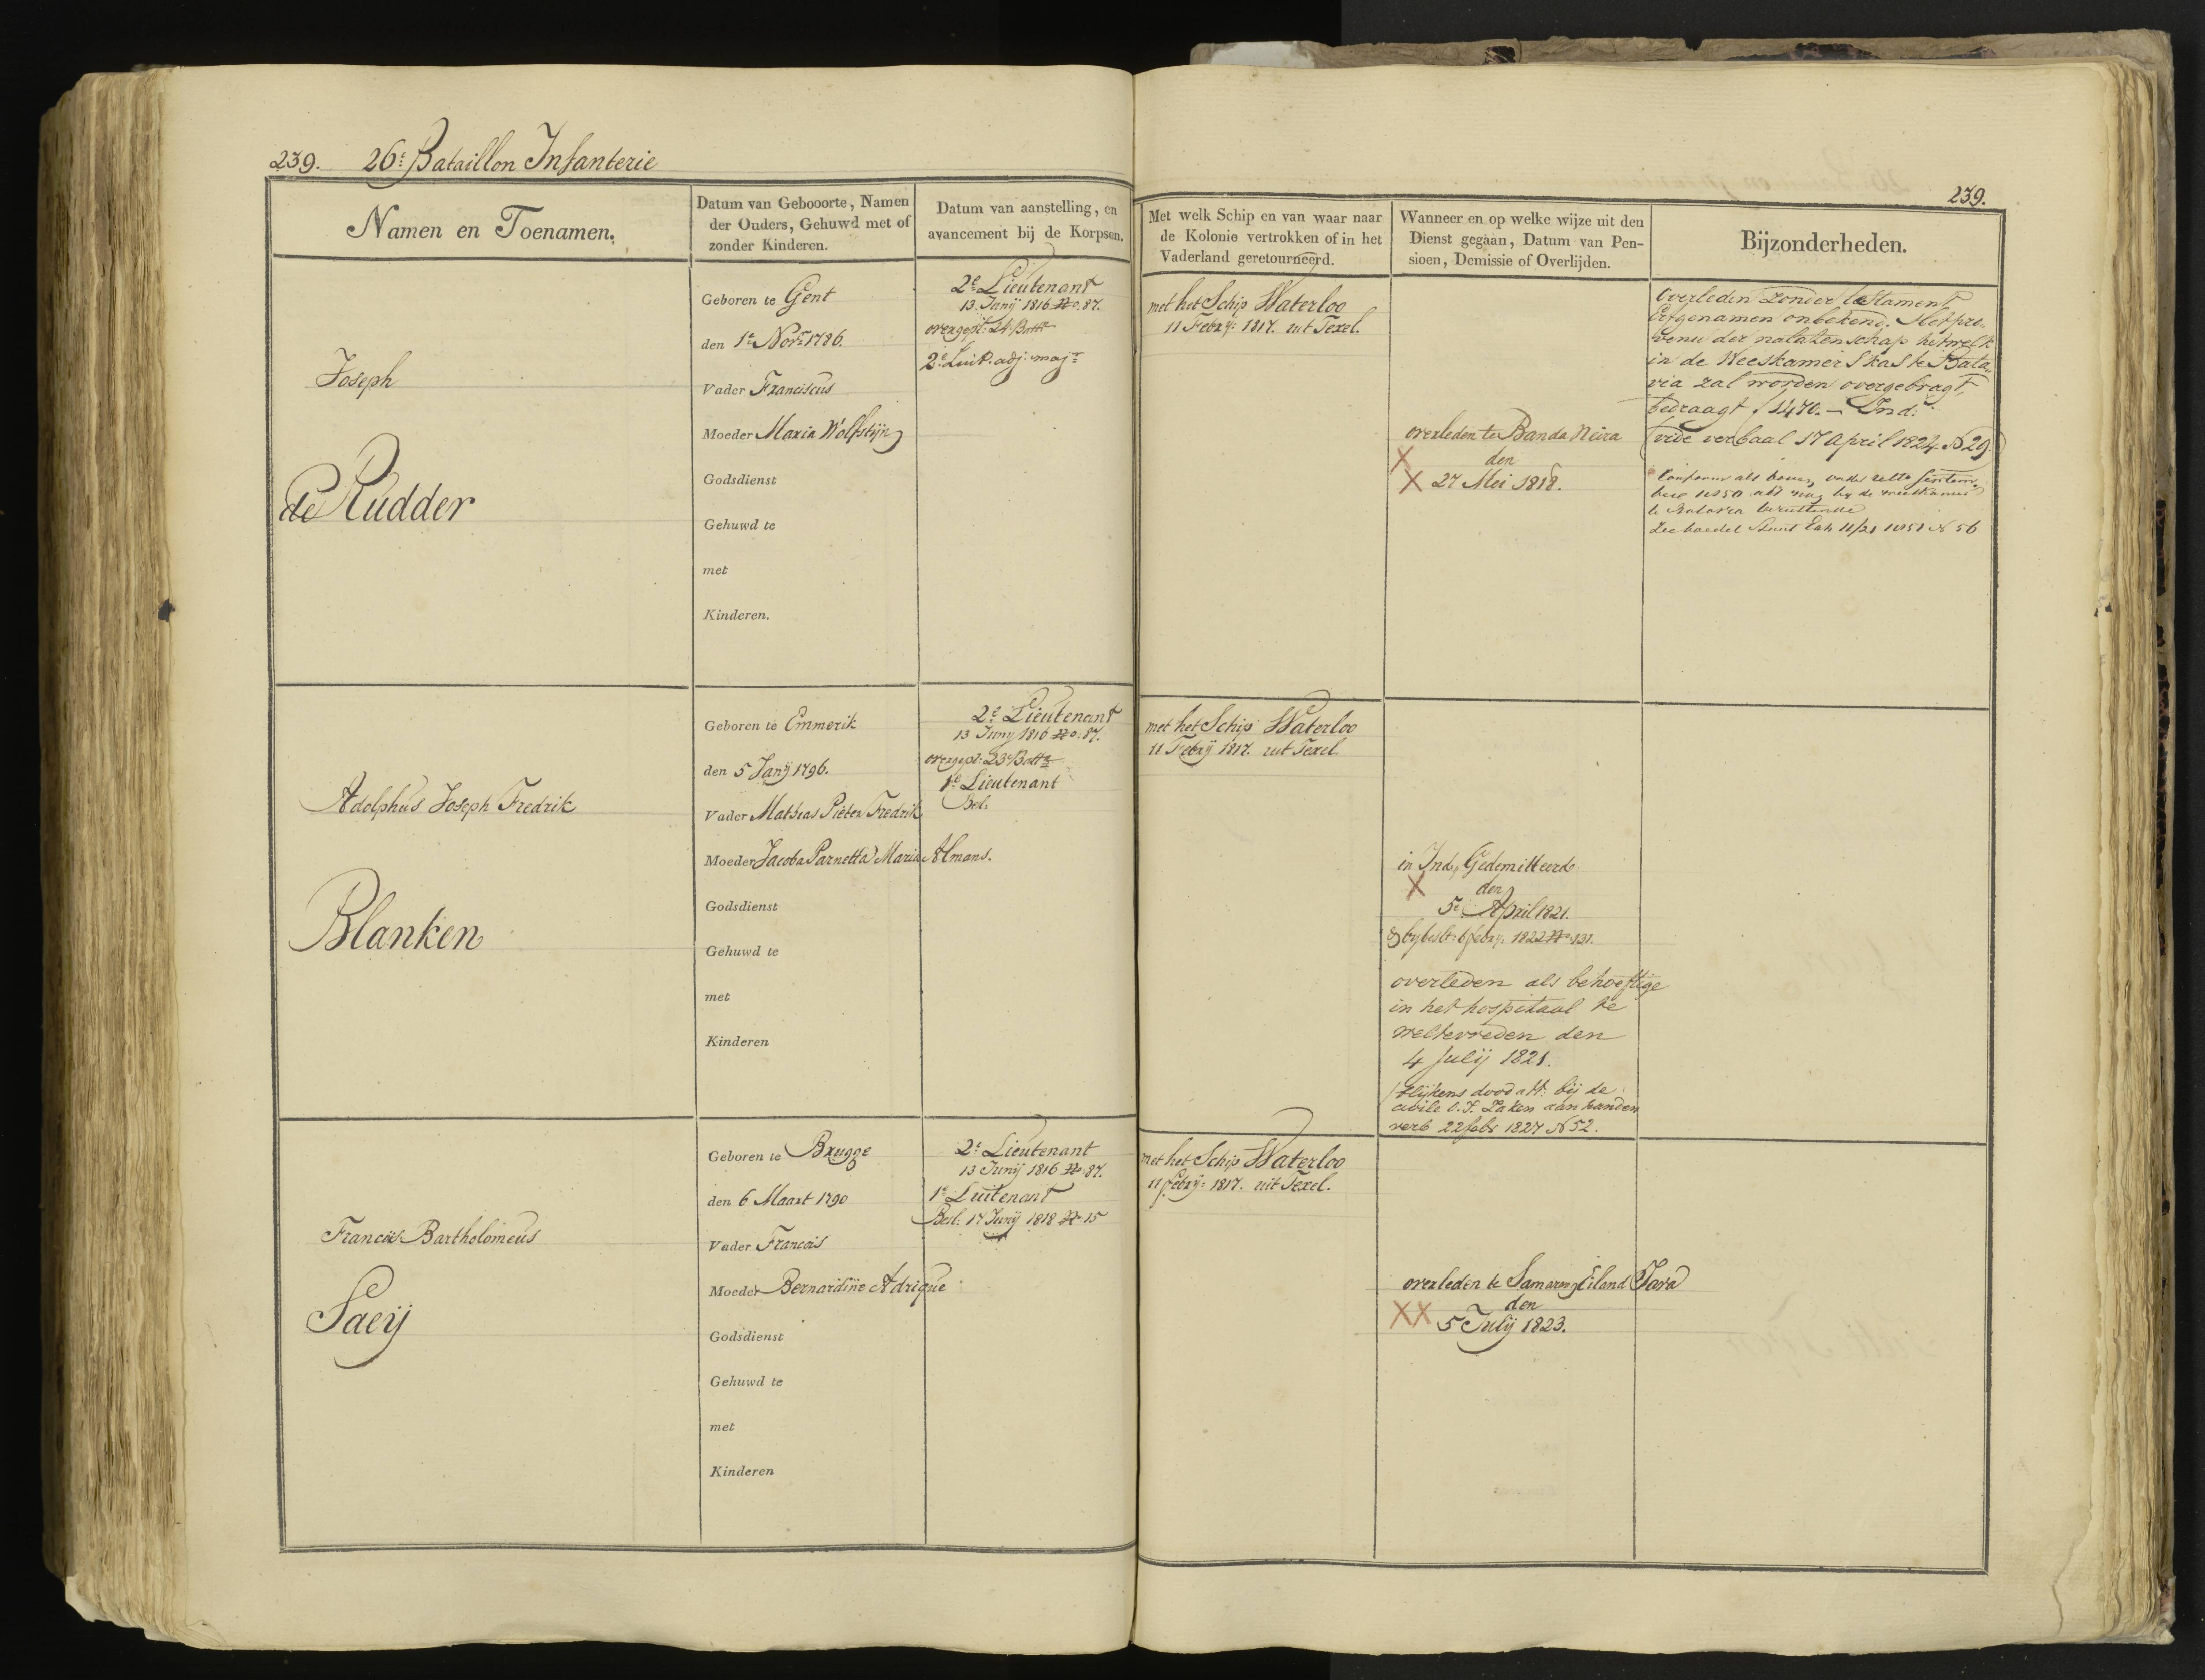 239. 26e Bataillon Infanterie
239.
Namen en Toenamen.
Datum van Gebooorte, Namen
der Ouders, Gehuwd met of
zonder Kinderen.
Datum van aanstelling, en
avancement bij de Korpsen.
Met welk Schip en van waar naar
de Kolonie vertrokken of in het
Vaderland geretourneerd.
Wanneer en op welke wijze uit den
Dienst gegaan, Datum van Pen-
sioen, Demissie of Overlijden.
Bijzonderheden.
Joseph
de Rudder
Geboren te Gent
den 1e Novr 1786.
Vader Franciscus
Moeder Maria Wolfstijn
Godsdienst
Gehuwd te
met
Kinderen.
2e Lieutenant
13 Junij 1816 No. 87.
overgepl: 24 Battn
2e Luit. adj: majr
met het Schip Waterloo
11 Febrij: 1817. uit Texel.
overleden te Banda Neira
den
27 Mei 1818.
Overleden zonder testament
Erfgenamen onbekend. Het pro-
venu der nalatenschap hetwelk
in de Weeskamers kas te Bata-
via zal worden overgebragt,
bedraagt f 1470.- Ind:
(vide verbaal 17 April 1824 No 29)
Conform als boven, onder
te Batavia
1851 No 56
Adolphus Joseph Fredrik
Blanken
Geboren te Emmerik
den 5 Janij 1796.
Vader Mathias Pieter Fredrik
Moeder Jacoba Parnetta Maria Almans.
Godsdienst
Gehuwd te
met
Kinderen
2e Lieutenant
13 Junij 1816 No. 87.
overgepl: 23 Battn
1e Lieutenant
Besl:
met het Schip Waterloo
11 Febrij 1817. uit Texel
in Ind, Gedemitteerd
den
5e April 1821.
bij besl: 6 febrij: 1822 No 131.
overleden als behoeftige
in het hospitaal te
weltevreden den
4 Julij 1821.
blijkens dood att: bij de
civile O. I. Zaken aan handen
verb 22 febr 1827 No 52.
Francois Bartholomeus
Saeij
Geboren te Brugge
den 6 Maart 1790
Vader Francois
Moeder Bernardine Adrique
Godsdienst
Gehuwd te
met
Kinderen
2e Lieutenant
13 Junij 1816 No 87.
1e Luitenant
Besl: 17 Junij 1818 No 15
met het Schip Waterloo
11 febrij: 1817. uit Texel.
overleden te Samarang Eiland Java
den
5 Julij 1823.